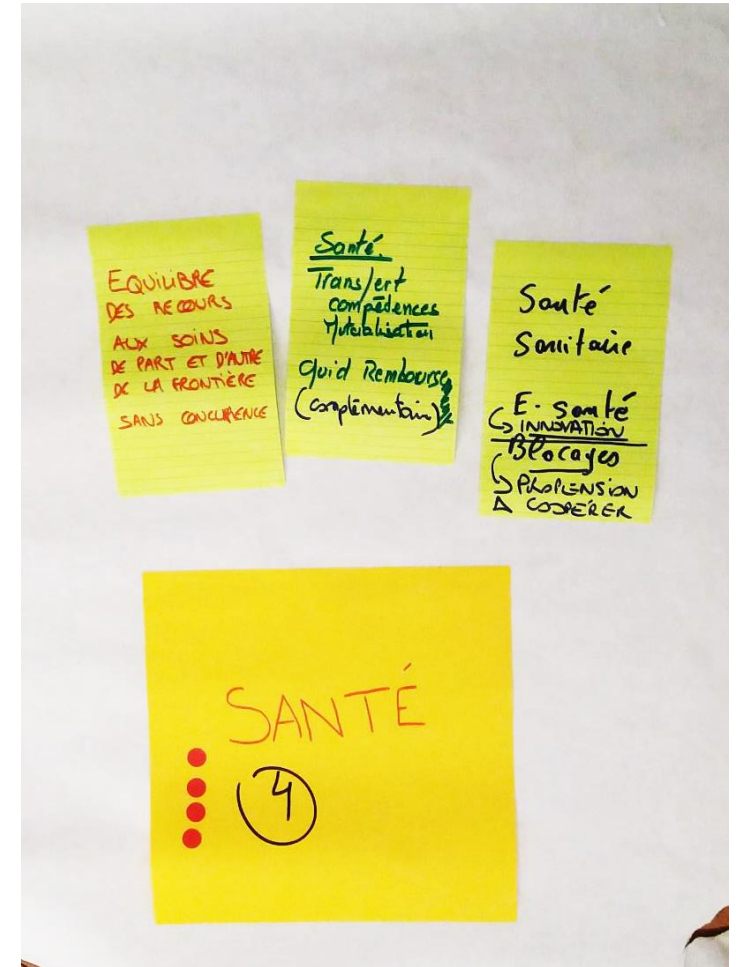 EQUILIBRE
DES RECOURS
AUX SOINS
DE PART ET D'AUTRE
DE LA FRONTIÈRE
SANS CONCURRENCE
Santé.
Transfert
compétences
Mutualisation
Quid Rembourse
(complémentair)
Santé
Sanitaire
E-santé
↳ INNOVATION
Blocages
↳ PROPENSION
À COOPÉRER
SANTÉ
4